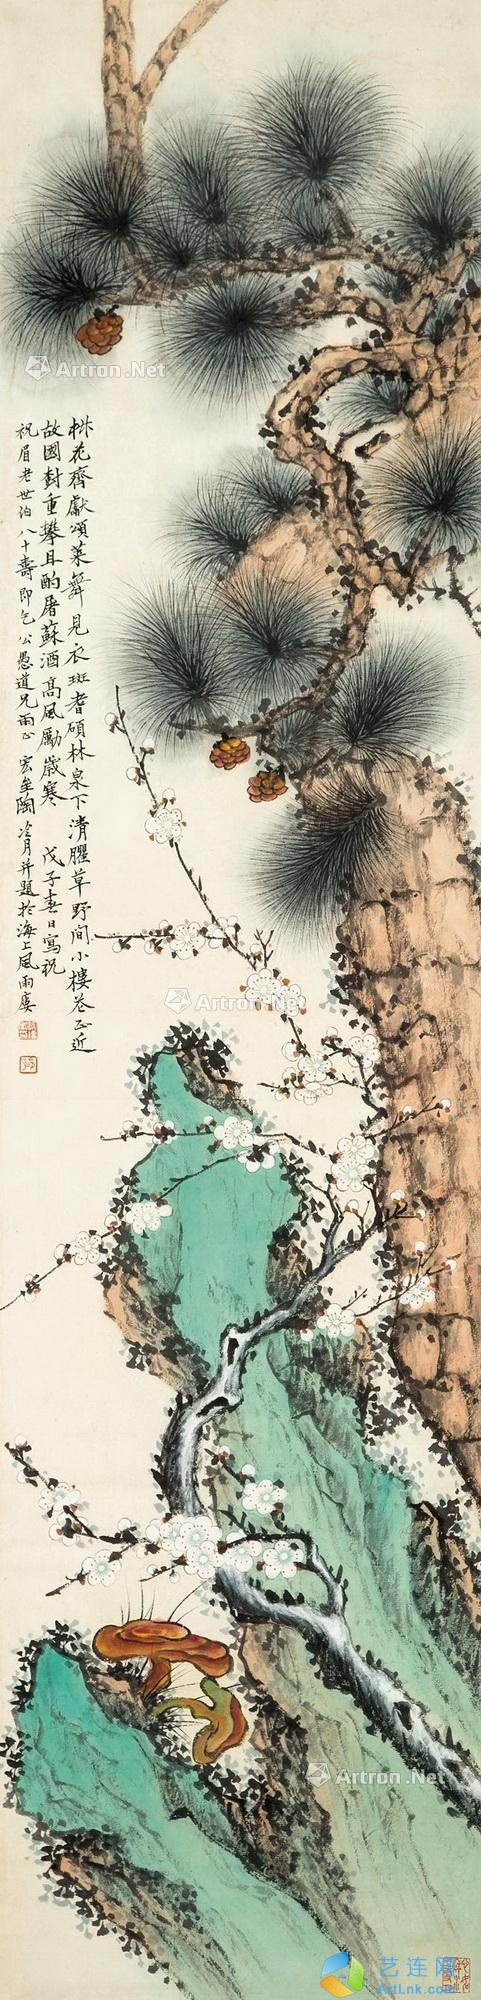 桃花齊獻頌萊舞見衣斑耆碩林泉下清臞草野間小樓春正近
故國對重攀且酌屠蘇酒高風勵歲寒 戊子春日寫祝
祝眉老世伯八十壽即乞公愚道兄兩正 宏壘陶冷月并題於海上風雨廔
Artron.Net
Artron.Net
Artron.Net
Artron.Net
艺连网
ArtLnk.com